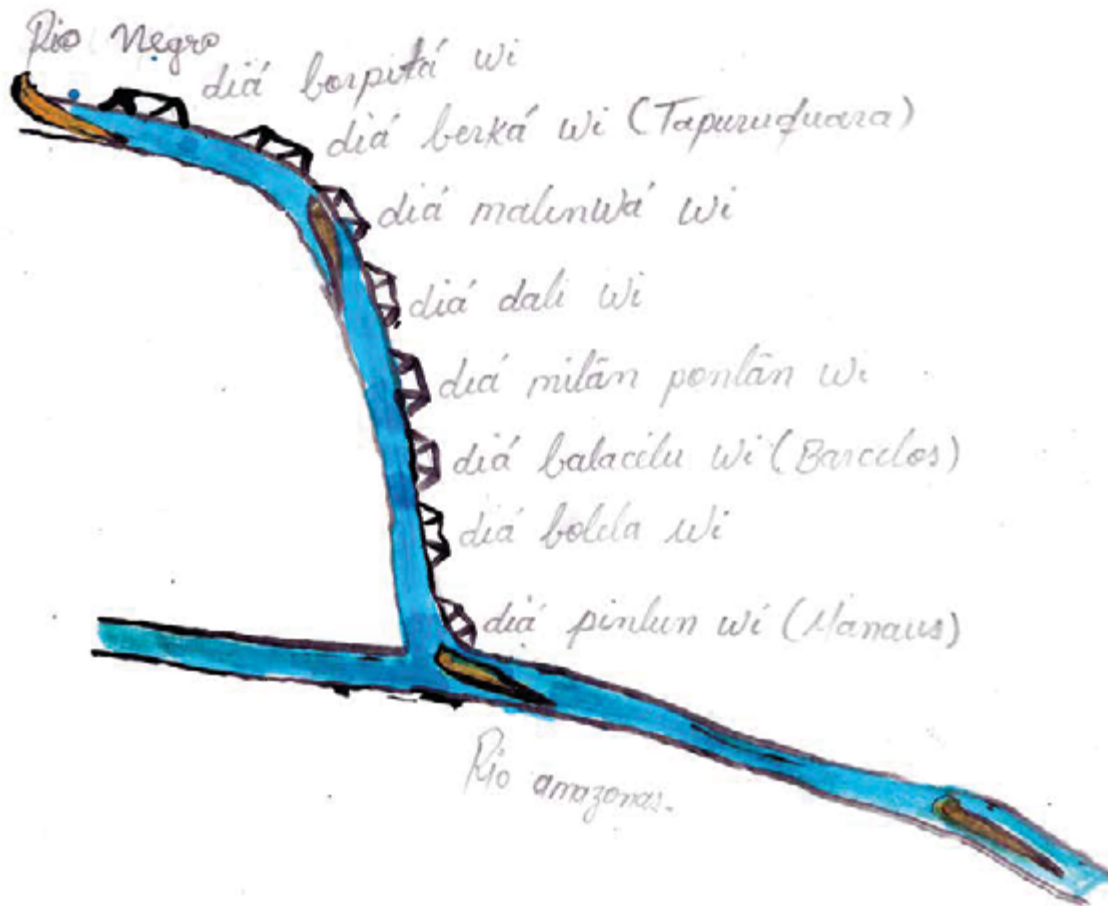 Rio Negro
diá borpitá wi
diá berká wi (Tapuruquara)
diá malinwá wi
diá dali wi
diá milãn ponlãn wi
diá balacilu wi (Barcelos)
diá bolela wi
diá pinlun wi (Manaus)
Rio amazonas.